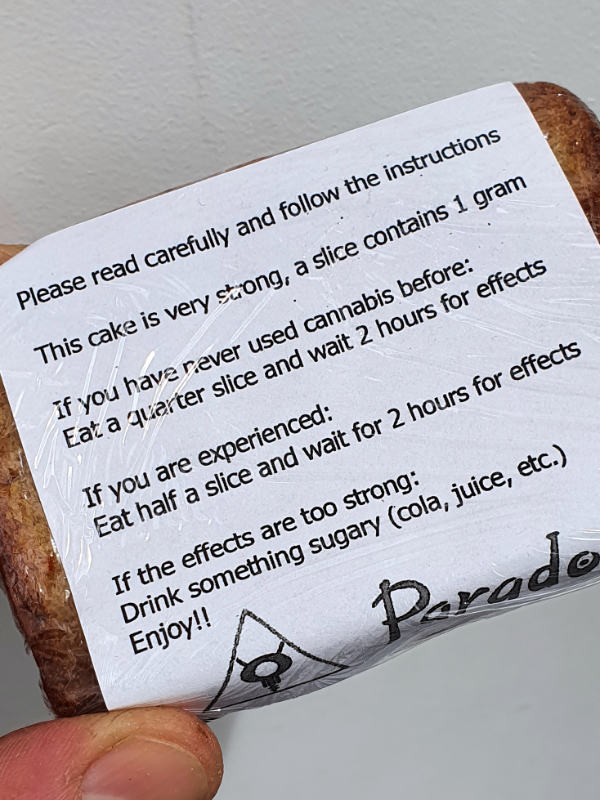 Please read carefully and follow the instructions
This cake is very strong, a slice contains 1 gram
If you have never used cannabis before:
Eat a quarter slice and wait 2 hours for effects
If you are experienced:
Eat half a slice and wait for 2 hours for effects
If the effects are too strong:
Drink something sugary (cola, juice, etc.)
Enjoy!!